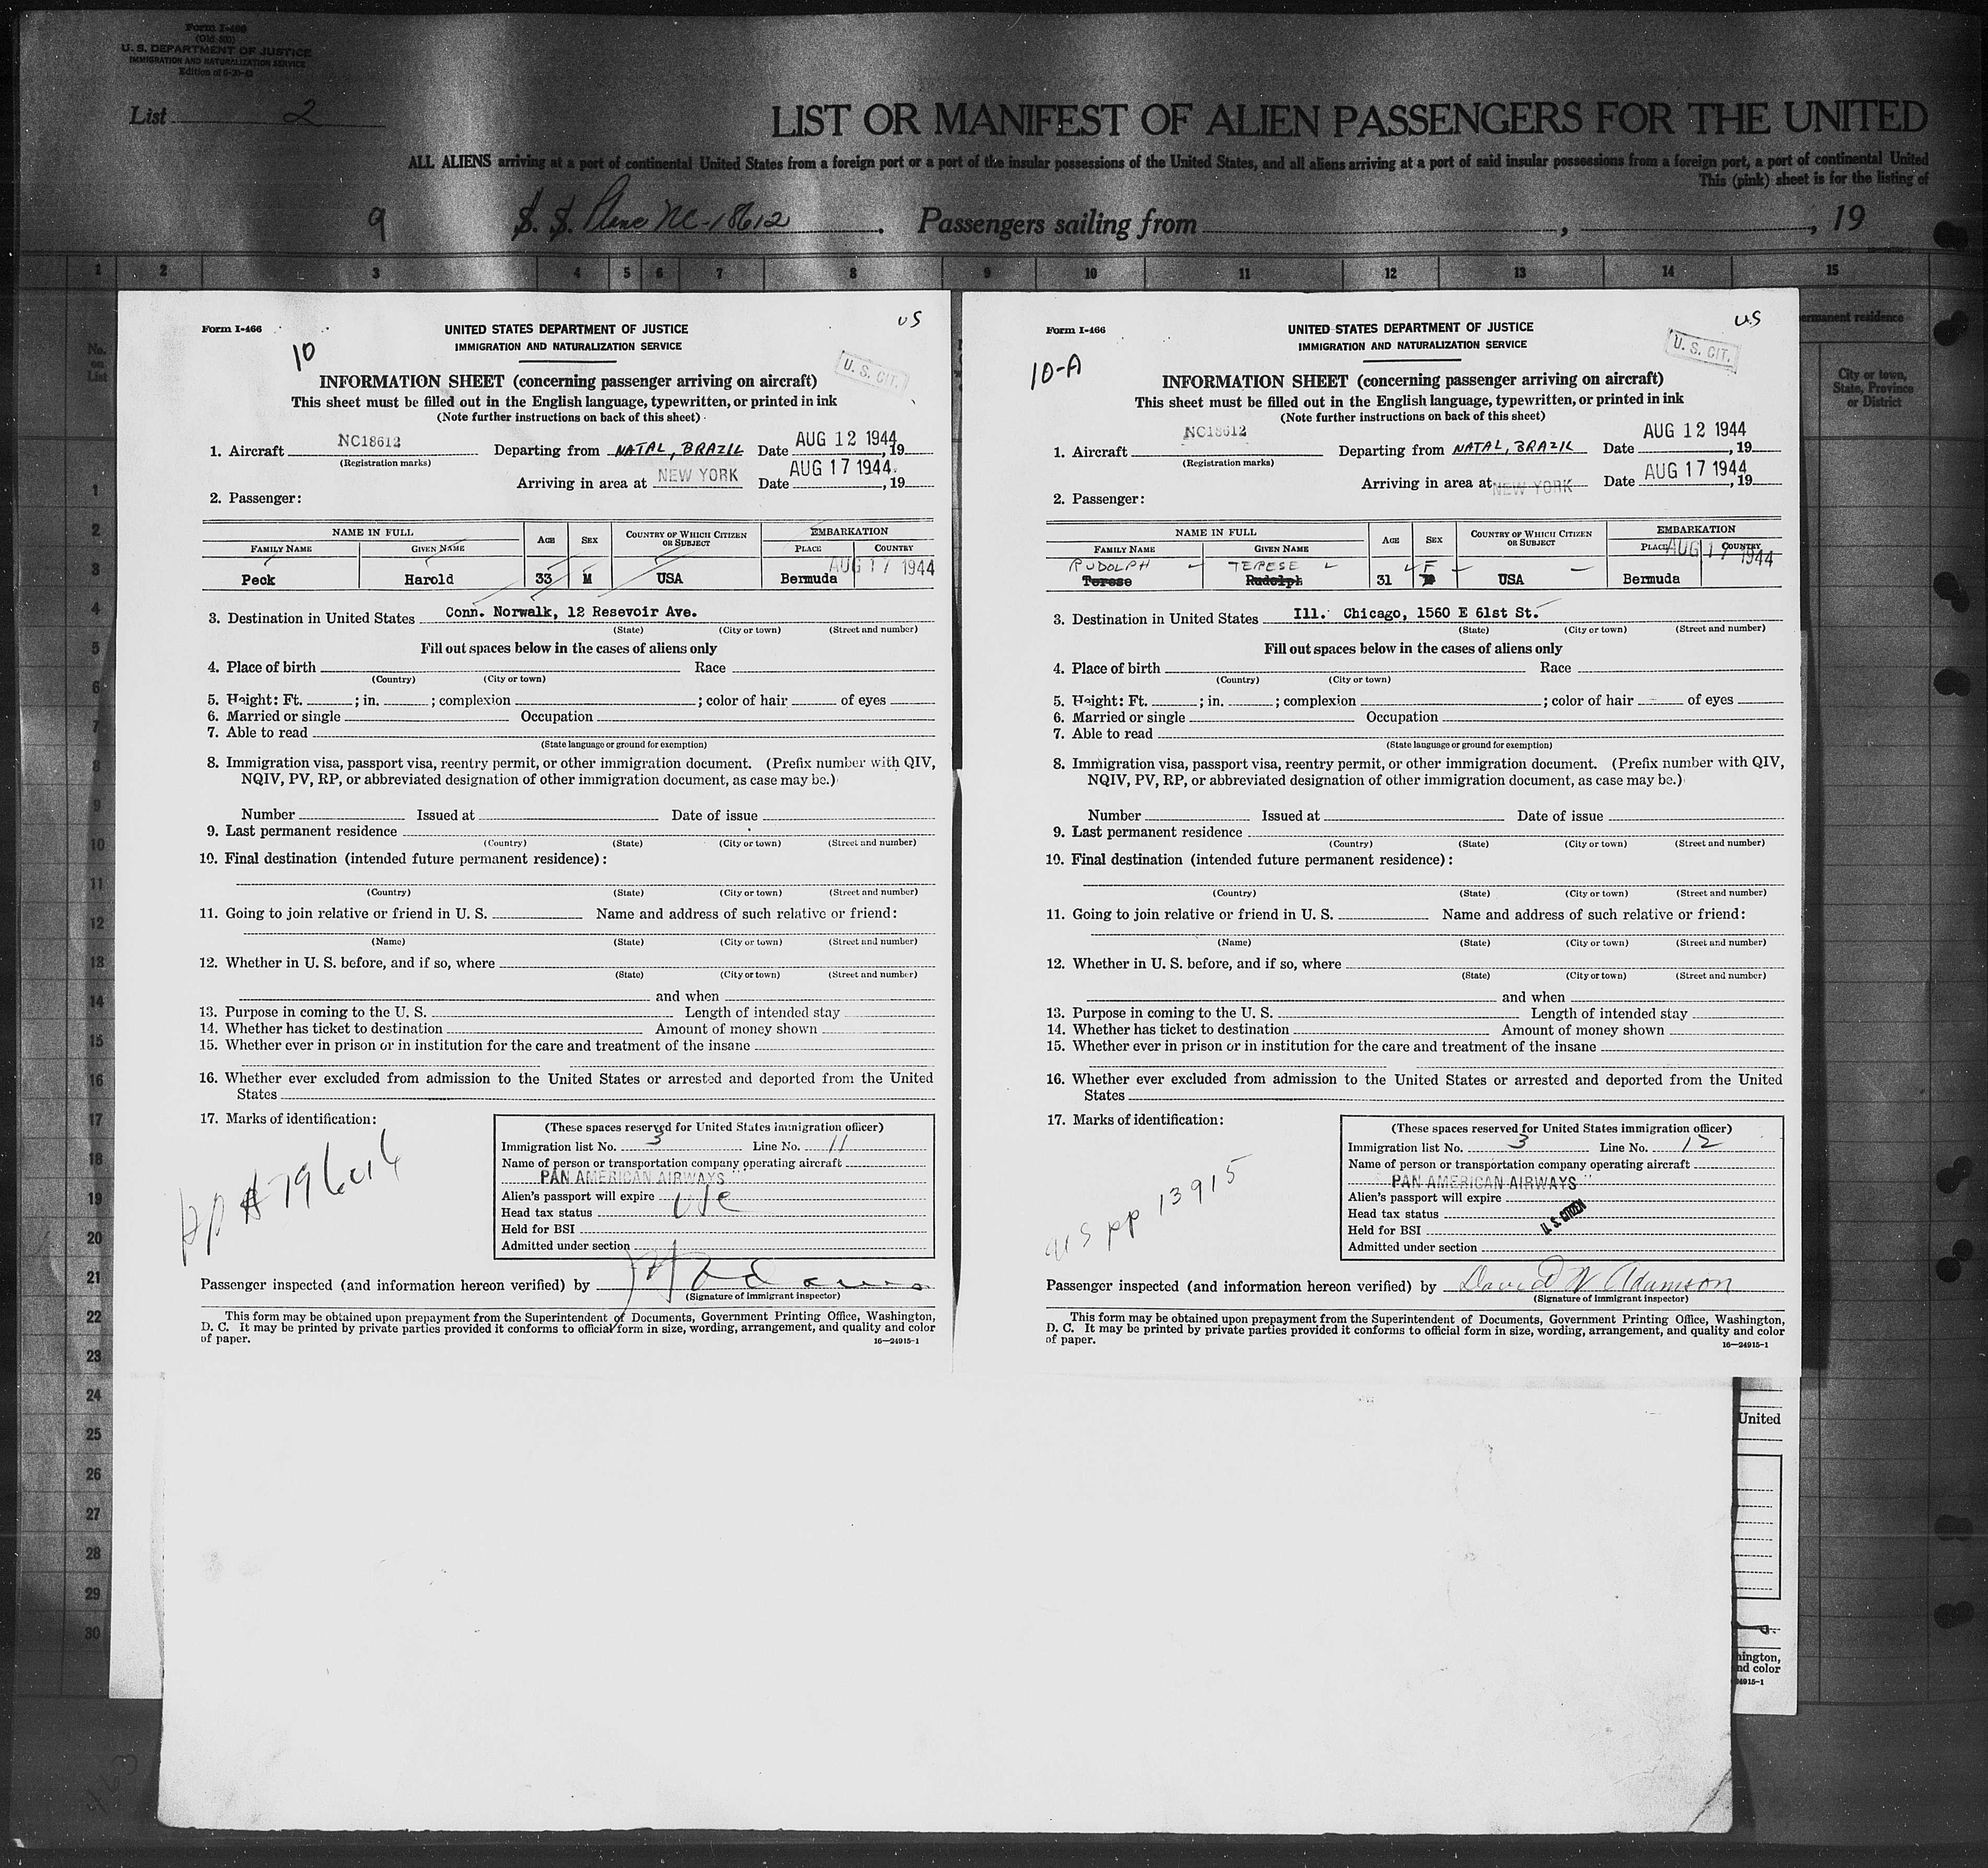 Form I-466
(Old 500)
U. S. DEPARTMENT OF JUSTICE
IMMIGRATION AND NATURALIZATION SERVICE
List 2
LIST OR MANIFEST OF ALIEN PASSENGERS FOR THE UNITED
ALL ALIENS arriving at a port of continental United States from a foreign port or a port of the insular possessions of the United States, and all aliens arriving at a port of said insular possessions from a foreign port, a port of continental United
This (pink) sheet is for the listing of
9 S. S. Plane NC-18612. Passengers sailing from , , 19
1 2 3 4 5 6 7 8 9 10 11 12 13 14 15
No. on List
ermanent residence
City or town,
State, Province
or District
1
2
3
4
5
6
7
8
9
10
11
12
13
14
15
16
17
18
19
20
21
22
23
24
25
26
27
28
29
30
Form I-466
10
US
UNITED STATES DEPARTMENT OF JUSTICE
IMMIGRATION AND NATURALIZATION SERVICE
U. S. CIT.
INFORMATION SHEET (concerning passenger arriving on aircraft)
This sheet must be filled out in the English language, typewritten, or printed in ink
(Note further instructions on back of this sheet)
1. Aircraft NC18612 Departing from NATAL, BRAZIL Date AUG 12 1944, 19
(Registration marks)
Arriving in area at NEW YORK Date AUG 17 1944, 19
2. Passenger:
NAME IN FULL AGE SEX COUNTRY OF WHICH CITIZEN OR SUBJECT EMBARKATION
FAMILY NAME GIVEN NAME PLACE COUNTRY
AUG 17 1944
Peck Harold 33 M USA Bermuda
3. Destination in United States Conn. Norwalk, 12 Resevoir Ave.
(State) (City or town) (Street and number)
Fill out spaces below in the cases of aliens only
4. Place of birth Race
(Country) (City or town)
5. Height: Ft. ; in. ; complexion ; color of hair of eyes
6. Married or single Occupation
7. Able to read
(State language or ground for exemption)
8. Immigration visa, passport visa, reentry permit, or other immigration document. (Prefix number with QIV,
NQIV, PV, RP, or abbreviated designation of other immigration document, as case may be.)
Number Issued at Date of issue
9. Last permanent residence
(Country) (State) (City or town) (Street and number)
10. Final destination (intended future permanent residence):
(Country) (State) (City or town) (Street and number)
11. Going to join relative or friend in U. S. Name and address of such relative or friend:
(Name) (State) (City or town) (Street and number)
12. Whether in U. S. before, and if so, where
(State) (City or town) (Street and number)
and when
13. Purpose in coming to the U. S. Length of intended stay
14. Whether has ticket to destination Amount of money shown
15. Whether ever in prison or in institution for the care and treatment of the insane
16. Whether ever excluded from admission to the United States or arrested and deported from the United
States
17. Marks of identification:
(These spaces reserved for United States immigration officer)
Immigration list No. 3 Line No. 11
Name of person or transportation company operating aircraft
PAN AMERICAN AIRWAYS
Alien's passport will expire
Head tax status
Held for BSI
Admitted under section
Passenger inspected (and information hereon verified) by
(Signature of immigrant inspector)
This form may be obtained upon prepayment from the Superintendent of Documents, Government Printing Office, Washington,
D. C. It may be printed by private parties provided it conforms to official form in size, wording, arrangement, and quality and color
of paper.
16—24915-1
Form I-466
10-A
US
UNITED STATES DEPARTMENT OF JUSTICE
IMMIGRATION AND NATURALIZATION SERVICE
U. S. CIT.
INFORMATION SHEET (concerning passenger arriving on aircraft)
This sheet must be filled out in the English language, typewritten, or printed in ink
(Note further instructions on back of this sheet)
1. Aircraft NC18612 Departing from NATAL, BRAZIL Date AUG 12 1944, 19
(Registration marks)
Arriving in area at NEW YORK Date AUG 17 1944, 19
2. Passenger:
NAME IN FULL AGE SEX COUNTRY OF WHICH CITIZEN OR SUBJECT EMBARKATION
FAMILY NAME GIVEN NAME PLACE COUNTRY
AUG 17 1944
RUDOLPH TERESE F
Terese Rudolph 31 USA Bermuda
3. Destination in United States Ill. Chicago, 1560 E 61st St.
(State) (City or town) (Street and number)
Fill out spaces below in the cases of aliens only
4. Place of birth Race
(Country) (City or town)
5. Height: Ft. ; in. ; complexion ; color of hair of eyes
6. Married or single Occupation
7. Able to read
(State language or ground for exemption)
8. Immigration visa, passport visa, reentry permit, or other immigration document. (Prefix number with QIV,
NQIV, PV, RP, or abbreviated designation of other immigration document, as case may be.)
Number Issued at Date of issue
9. Last permanent residence
(Country) (State) (City or town) (Street and number)
10. Final destination (intended future permanent residence):
(Country) (State) (City or town) (Street and number)
11. Going to join relative or friend in U. S. Name and address of such relative or friend:
(Name) (State) (City or town) (Street and number)
12. Whether in U. S. before, and if so, where
(State) (City or town) (Street and number)
and when
13. Purpose in coming to the U. S. Length of intended stay
14. Whether has ticket to destination Amount of money shown
15. Whether ever in prison or in institution for the care and treatment of the insane
16. Whether ever excluded from admission to the United States or arrested and deported from the United
States
17. Marks of identification:
US pp 13915
(These spaces reserved for United States immigration officer)
Immigration list No. 3 Line No. 12
Name of person or transportation company operating aircraft
PAN AMERICAN AIRWAYS
Alien's passport will expire
Head tax status
U. S. CITIZEN
Held for BSI
Admitted under section
Passenger inspected (and information hereon verified) by David N Adamson
(Signature of immigrant inspector)
This form may be obtained upon prepayment from the Superintendent of Documents, Government Printing Office, Washington,
D. C. It may be printed by private parties provided it conforms to official form in size, wording, arrangement, and quality and color
of paper.
16—24915-1
United
hington,
nd color
24915-1